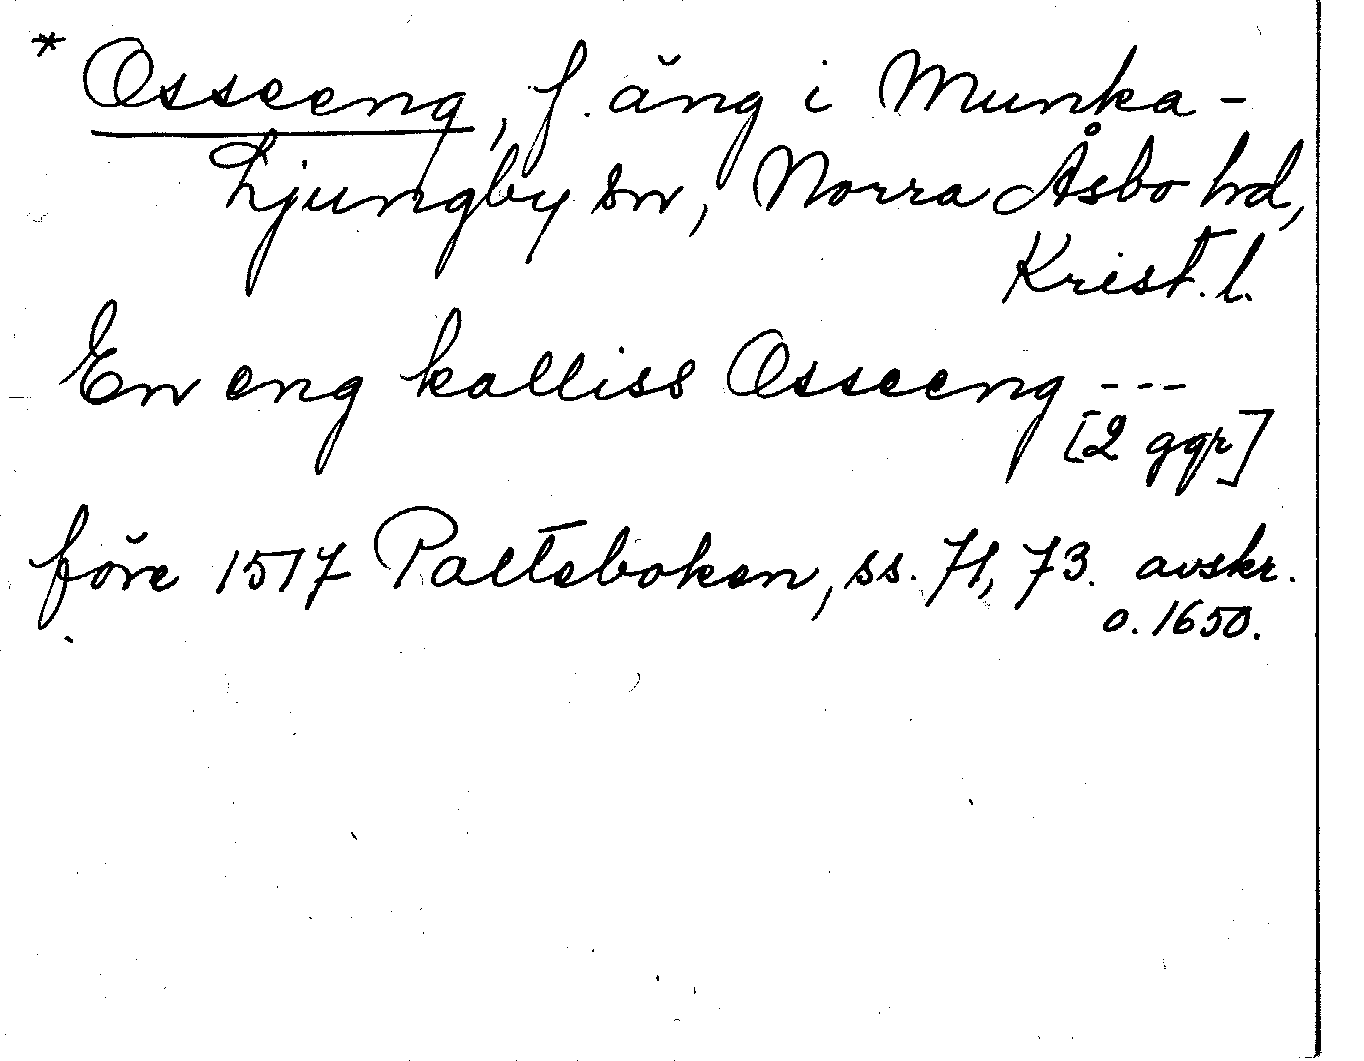 * Osseeng, f. äng i Munka-
Ljungby sn, Norra Åsbo hd,
Krist. l.
En eng kalliss Osseeng ---
[2 ggr]
före 1517 Palteboken, ss. 71, 73. avskr.
o. 1650.